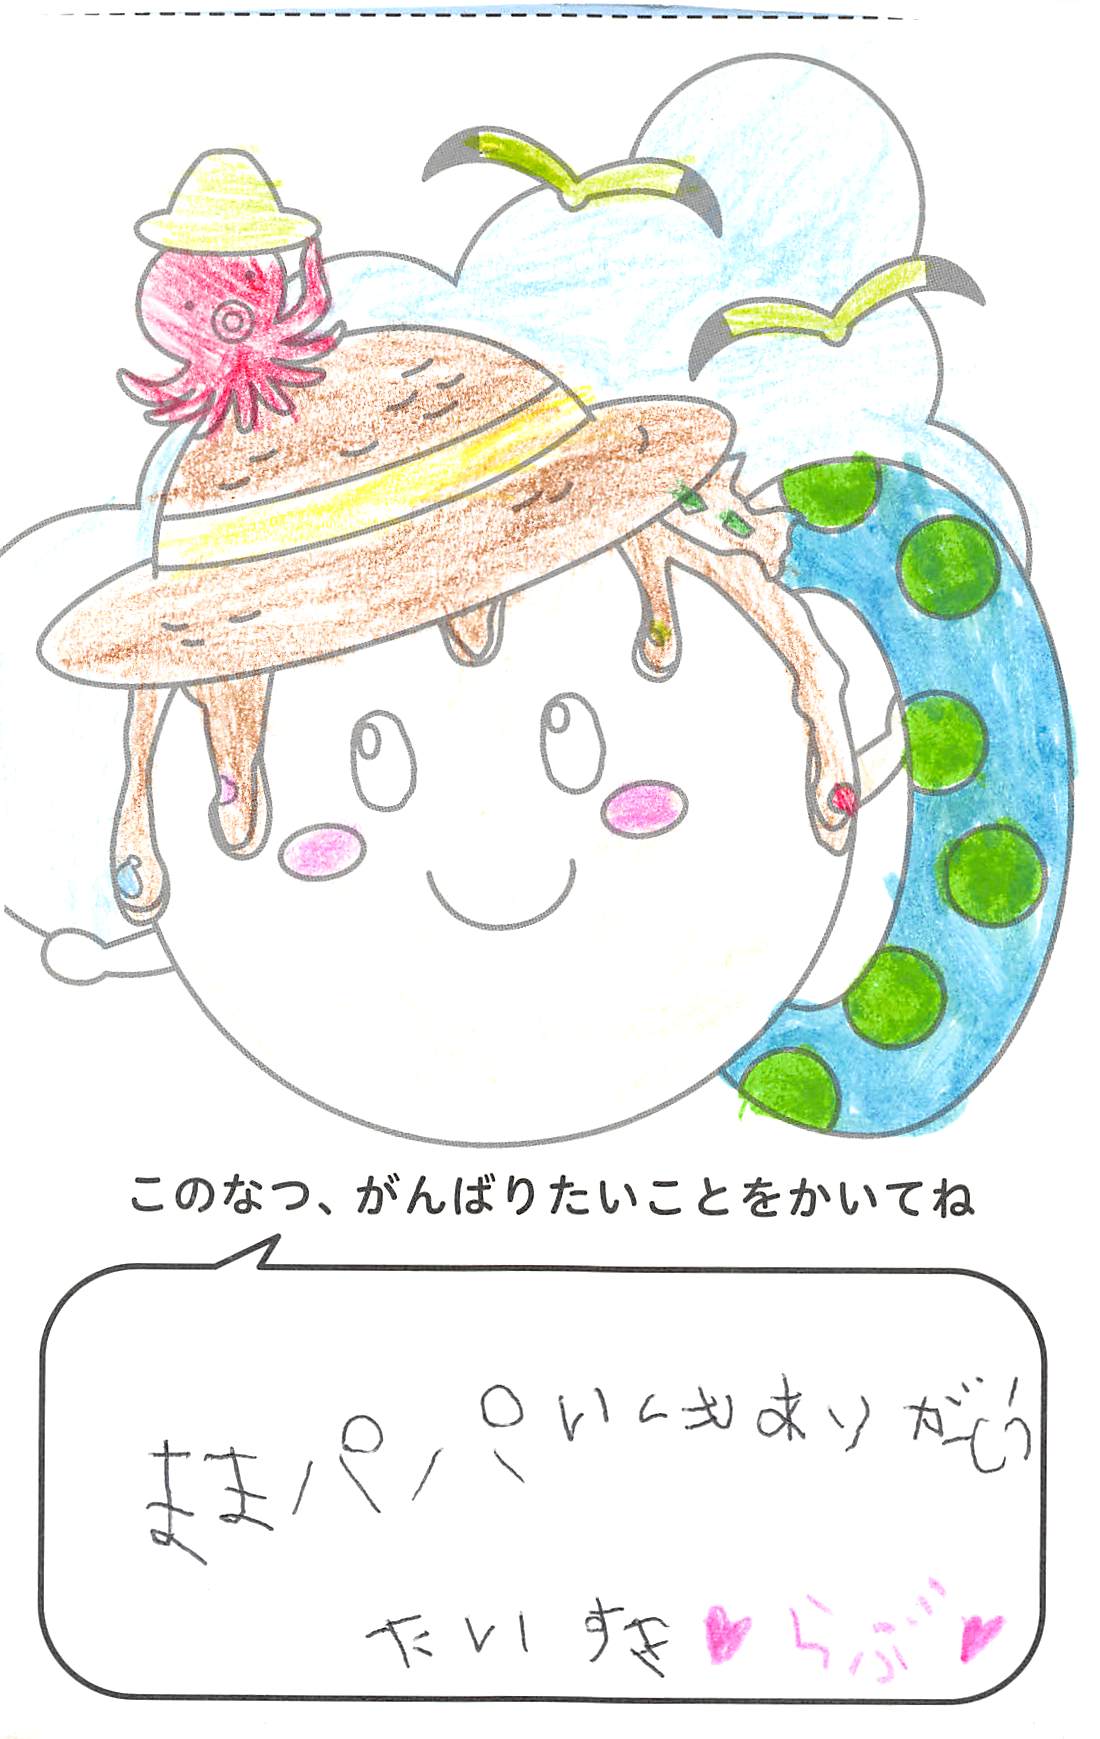 このなつ、がんばりたいことをかいてね
ままパパいくもありがとう
だいすき♥らぶ♥